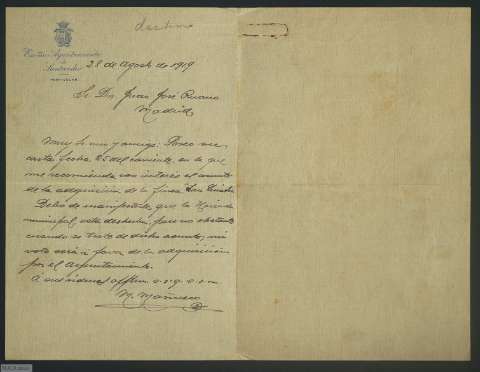 Excmo. Ayuntamiento
de
Santander
28 de Agosto de 1919
Sr. Dn. Juan José Ruano
Madrid
Muy Sr. mio y amigo: Poseo su
carta fecha 25 del corriente, en la que
me recomienda con interés el asunto
de la adquisición de la finca
Debo de manifestarle, que la Hacienda
municipal, está deshecha; pero no obstante
cuando se trate de dicho asunto, mi
voto será a favor de la adquisición
por el Ayuntamiento.
A sus órdenes affmo. s.s.q.e.s.m.
M.